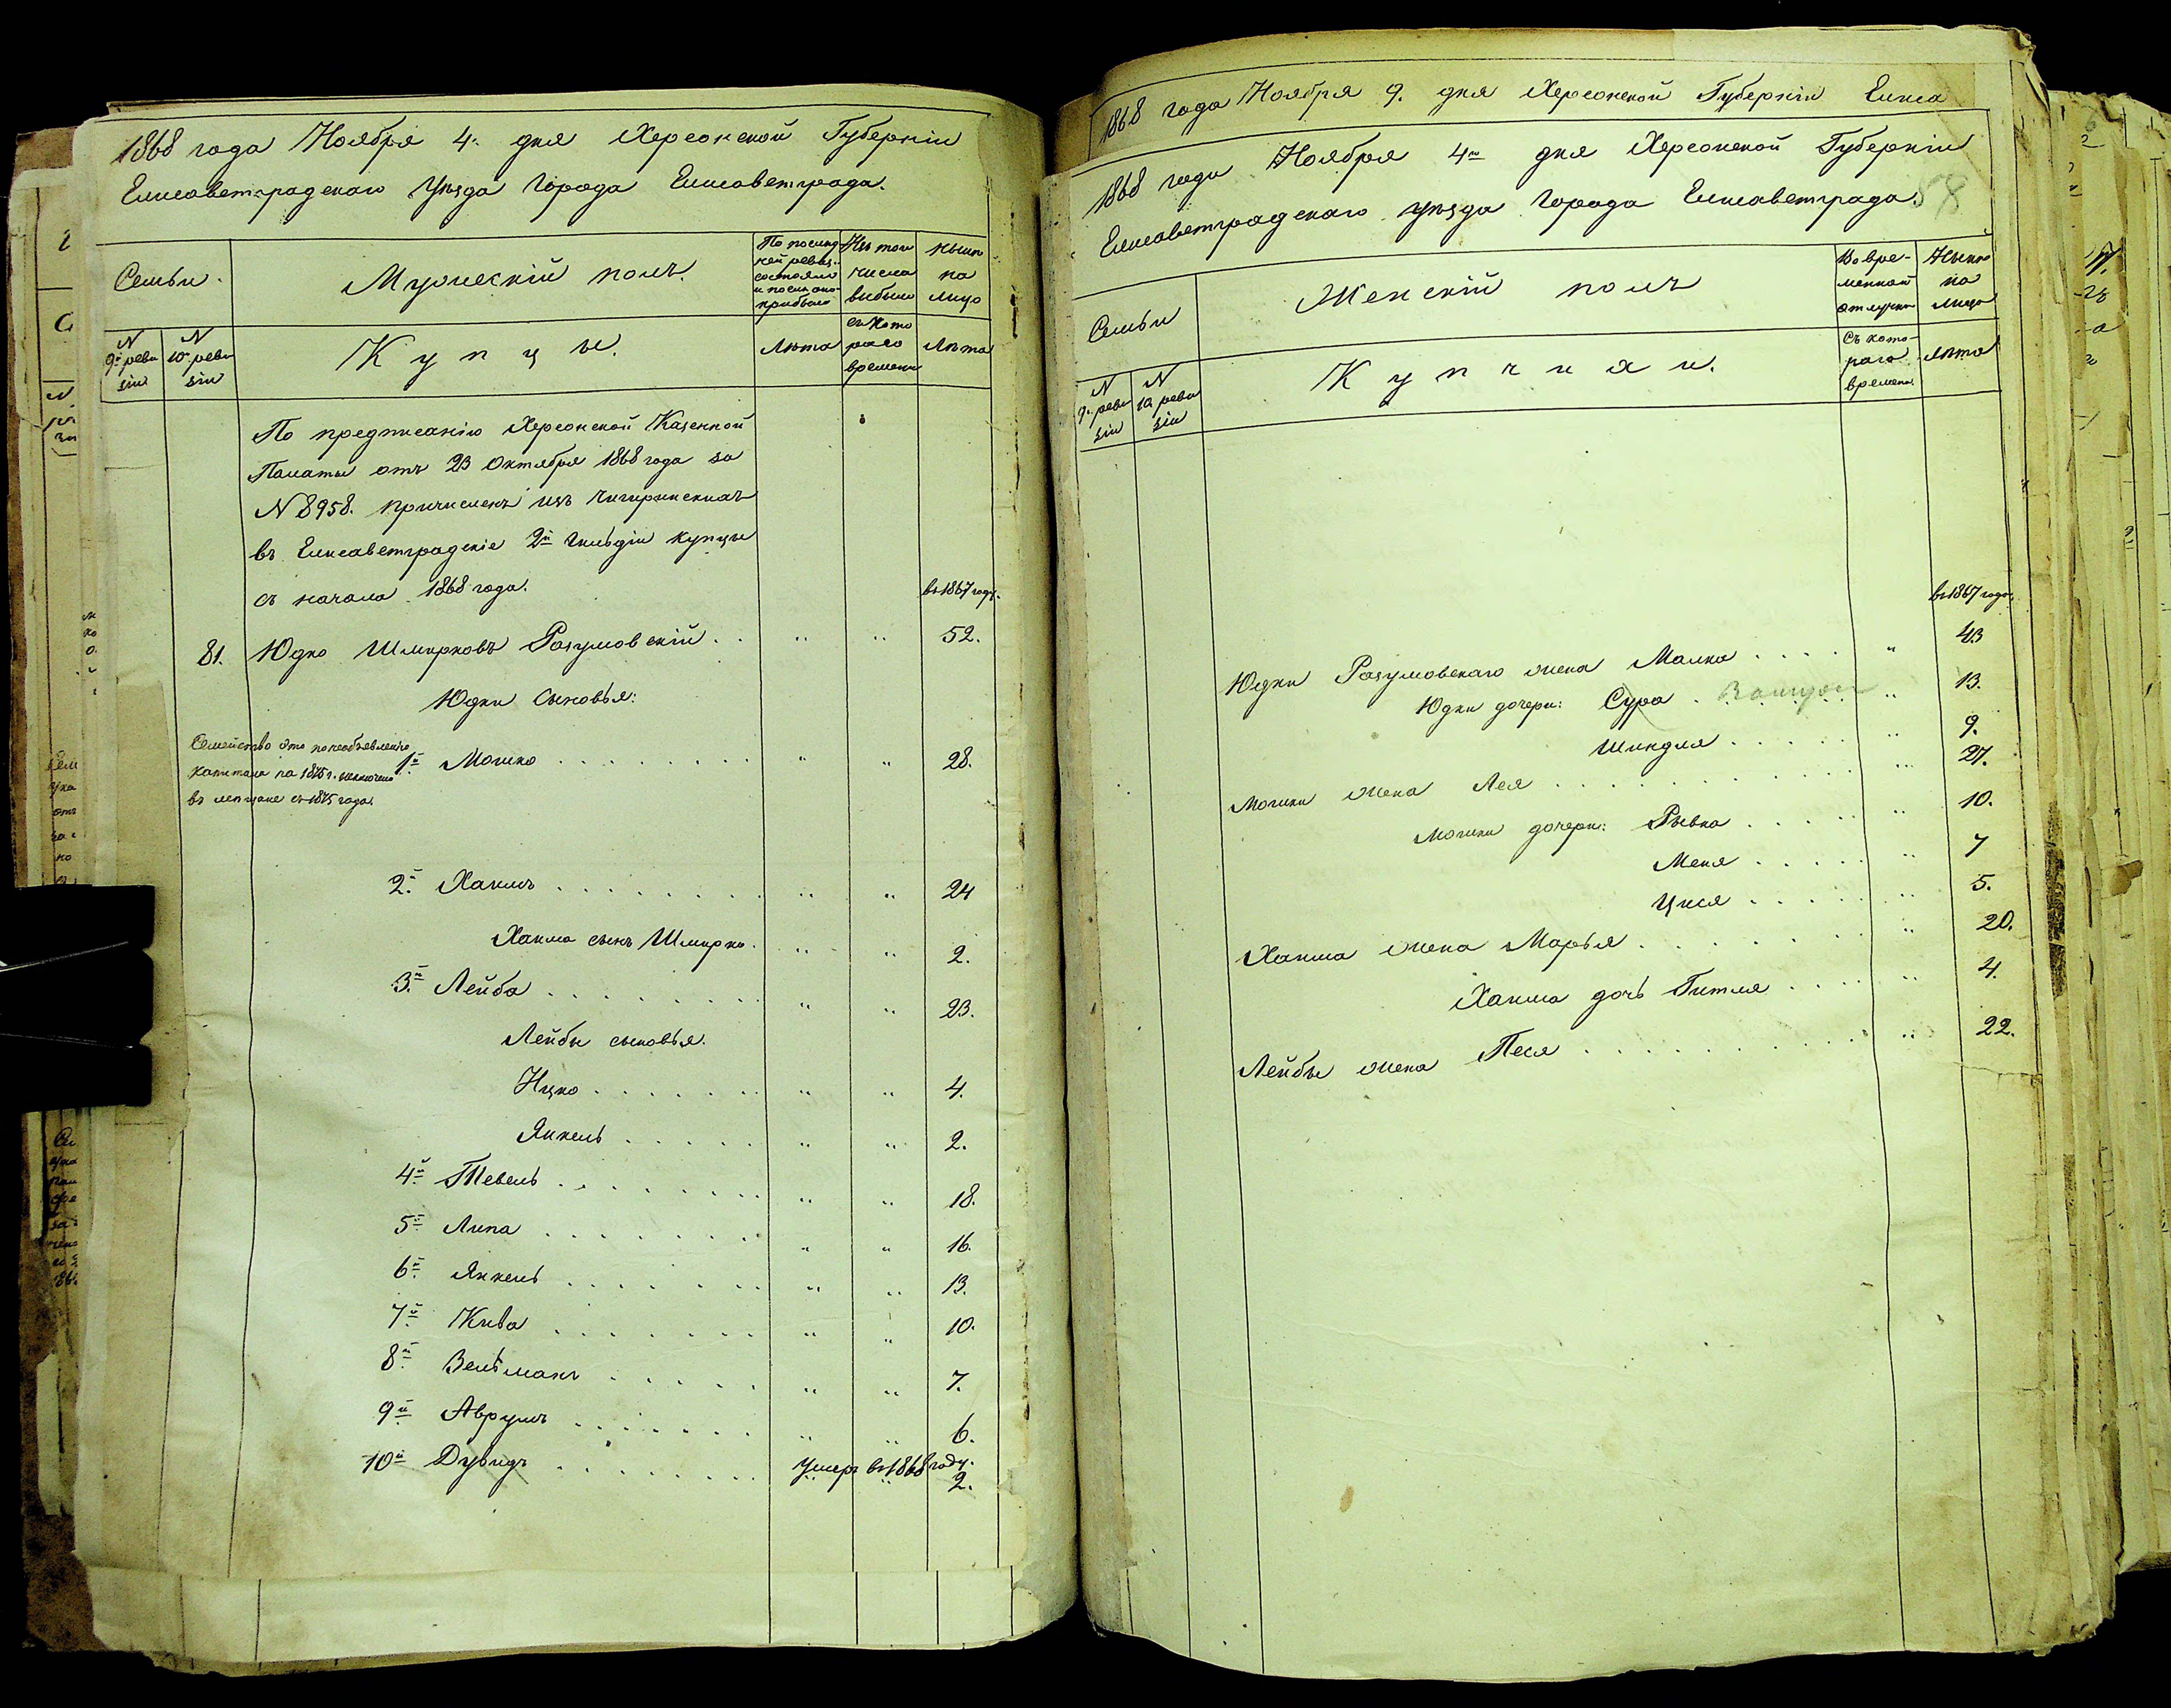 1868 года Ноября 4. дня Херсонской Губерніи
Елисаветградскаго Уѣзда Города Елисаветграда.
Семьи.
Мужескій полъ.
По послѣд
ней ревиз.
состояло
и послѣ оной
прибыло
Изъ того
числа
выбыло
Нынѣ
на
лицо
N
9й реви
зіи
N
10й реви
зіи
Купцы.
Лѣта
съ кото
раго
времени
Лѣта
По предписанію Херсонской Казенной
Палаты отъ 23 Октября 1868 года за
N 8958. причисленъ изъ Чигиринскихъ
въ Елисаветградскіе 2й Гильдіи купцы
съ начала 1868 года.
въ 1867 году.
81. Юдко Шмирковъ Разумовскій . . " " 52.
Юдки Сыновья:
Семейство это по необъявленію
капитала на 1875 г. исключено
въ мещане съ 1875 года.
1й Мошко . . . . . . . . " " 28.
2й Хаимъ . . . . . . . . " " 24
Хаима сынъ Шмирко. " " 2.
3й Лейба . . . . . . . . " " 23.
Лейбы сыновья.
Ицко . . . . . . . " " 4.
Янкель . . . . . " " 2.
4й Тевель . . . . . . . . " " 18.
5й Липа . . . . . . . . " " 16.
6й Янкель . . . . . . . " " 13.
7й Кива . . . . . . . " " 10.
8й Вельманъ . . . . . " " 7.
9й Аврумъ . . . . . . . " " 6.
10й Дувидъ . . . . . . . . умеръ въ 1868 году.
" " 2.
1868 года Ноября 9. дня Херсонской Губерніи Елиса
1868 года Ноября 4го дня Херсонской Губерніи
Елисаветградскаго уѣзда Города Елисаветграда.
58
Семьи
Женскій полъ
Во вре-
менной
отлучкѣ
Нынѣ
на
лицо
N
9. реви
зіи
N
10. реви
зіи
Купчихи.
Съ кото-
раго
времени.
Лѣта
въ 1867 году.
Юдки Разумовскаго жена Малка . . . . " 43
Юдки дочери: Сура . . . . . " 13.
Шиндля . . . . . " 9.
Мошки жена Лея . . . . . . . . . . " 27.
Мошки дочери: Рывка . . . . . " 10.
Меня . . . . . " 7
Цися . . . . . " 5.
Хаима жена Марья . . . . . . . . " 20.
Хаима дочь Гитля . . . . " 4.
Лейбы жена Песя . . . . . . . . . . " 22.